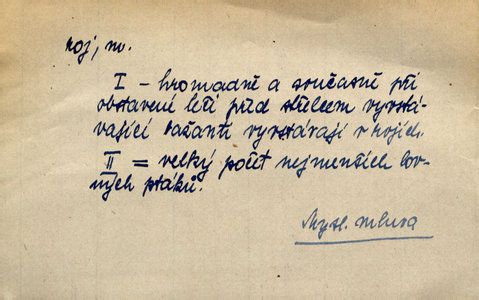 roj, m.
I – hromadně a současně při
obstavení leči před střelcem vyrstá-
vající bažanti vyrstávají v rojích.
II = velký počet nejmenších lov-
ných ptáků.
Mysl. mluva